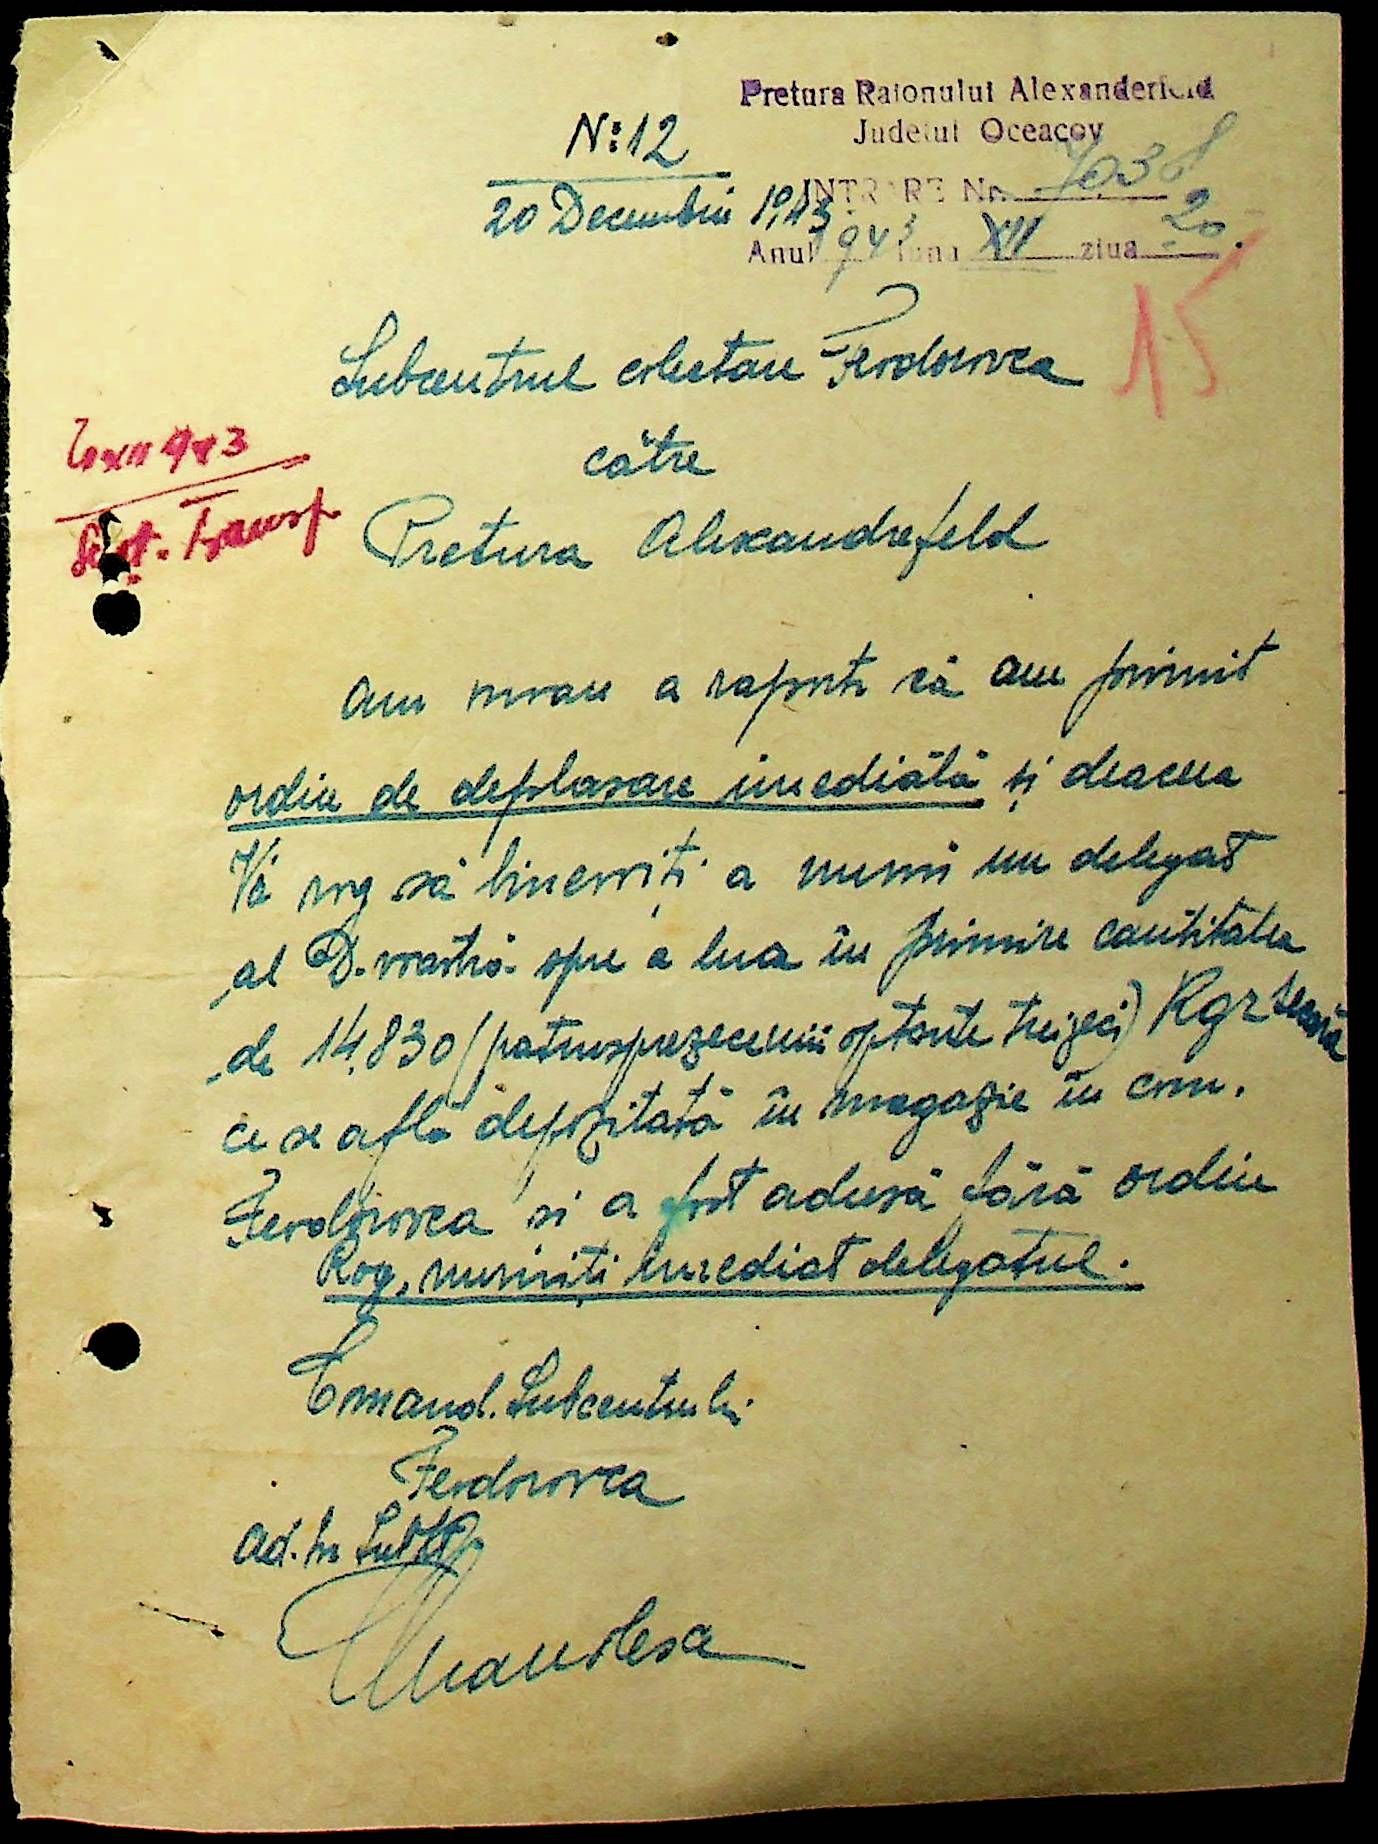 Pretura Raionului Alexanderfeld
Judetul Oceacov
INTRARE No. 7038
Anul 943 luna XII ziua 20.
No: 12
20 Decembrie 1943
15
Subcentrul colectare Feodorovca
către
Pretura Alexandrefeld
XII 943
Transp.
Am onoare a raporta că am primit
ordin de deplasare imediată și deaceea
Vă rog să binevoiți a numi un delegat
al D.voastră spre a lua în primire cantitatea
de 14.830 (patrusprezecemii optsute treizeci) Kgr secară
ce se află depozitată în magazie în com.
Feodorovca si a fost adusă fără ordin
Rog, numiți imediat delegatul.
Comand. Subcentrului
Feodorovca